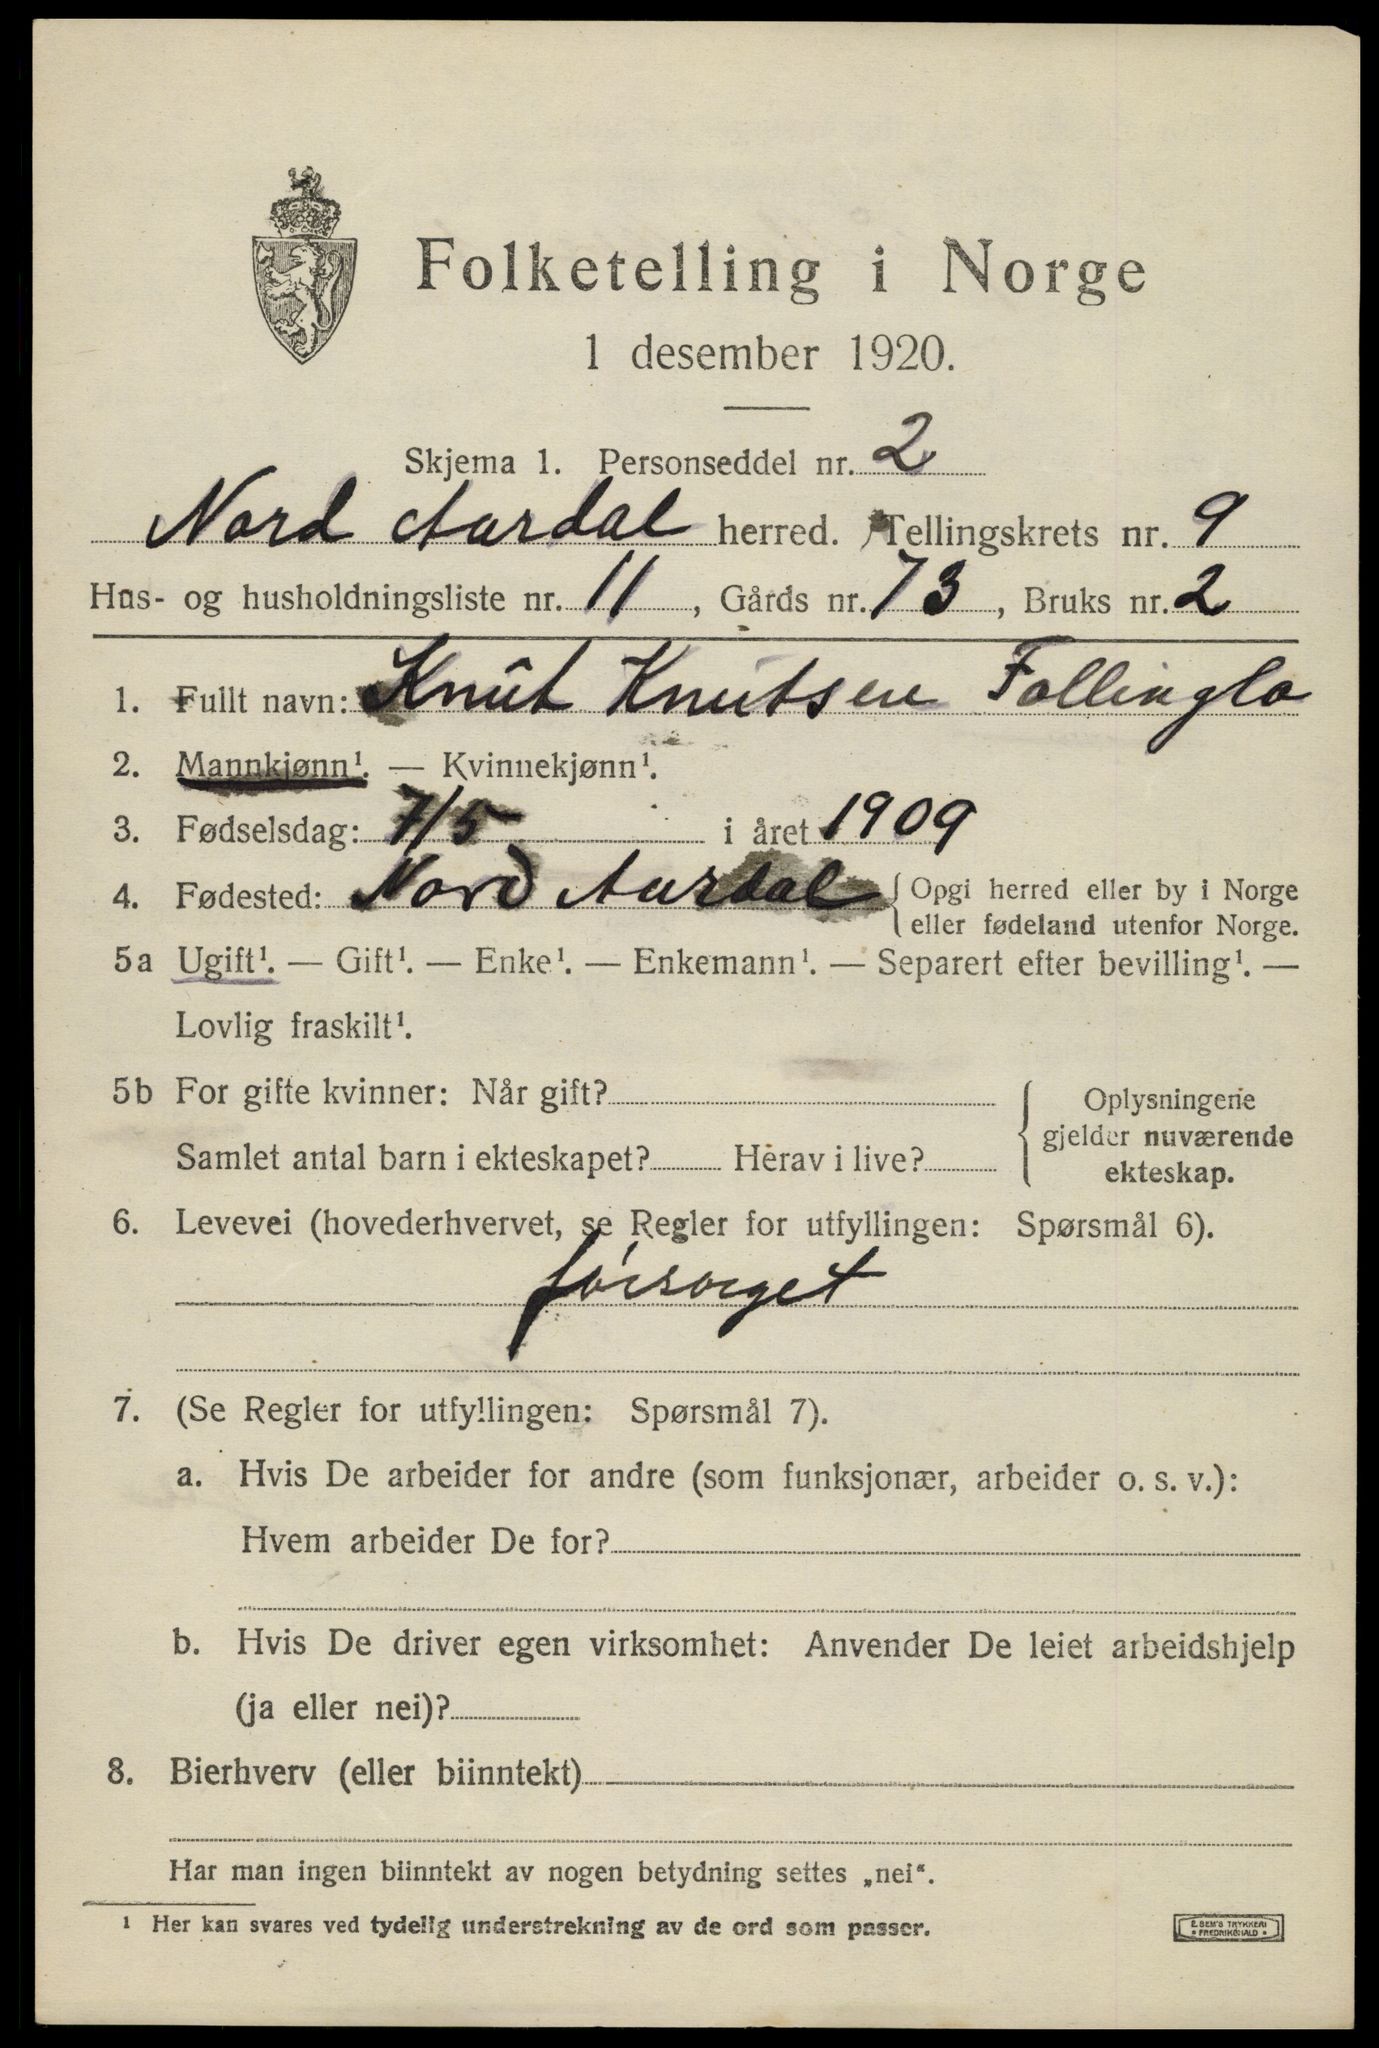 Folketelling i Norge
1 desember 1920.
Skjema 1. Personseddel nr. 2
Nord Aurdal herred. Tellingskrets nr. 9
Hus- og husholdningsliste nr. 11, Gårds nr. 73, Bruks nr. 2
1. Fullt navn: Knut Knutsen Follinglo
2. Mannkjønn¹. — Kvinnekjønn¹.
3. Fødselsdag: 7/5 i året 1909
4. Fødested: Nord Aurdal { Opgi herred eller by i Norge
eller fødeland utenfor Norge.
5a Ugift¹. — Gift¹. — Enke¹. — Enkemann¹. — Separert efter bevilling¹. —
Lovlig fraskilt¹.
5b For gifte kvinner: Når gift?
Samlet antal barn i ekteskapet? Herav i live?
Oplysningene
gjelder nuværende
ekteskap.
6. Levevei (hovederhvervet, se Regler for utfyllingen: Spørsmål 6).
forsørget
7. (Se Regler for utfyllingen: Spørsmål 7).
a. Hvis De arbeider for andre (som funksjonær, arbeider o. s. v.):
Hvem arbeider De for?
b. Hvis De driver egen virksomhet: Anvender De leiet arbeidshjelp
(ja eller nei)?
8. Bierhverv (eller biinntekt)
Har man ingen biinntekt av nogen betydning settes „nei“.
¹ Her kan svares ved tydelig understrekning av de ord som passer.
E SEM'S TRYKKERI
• FREDRIKSHALD •